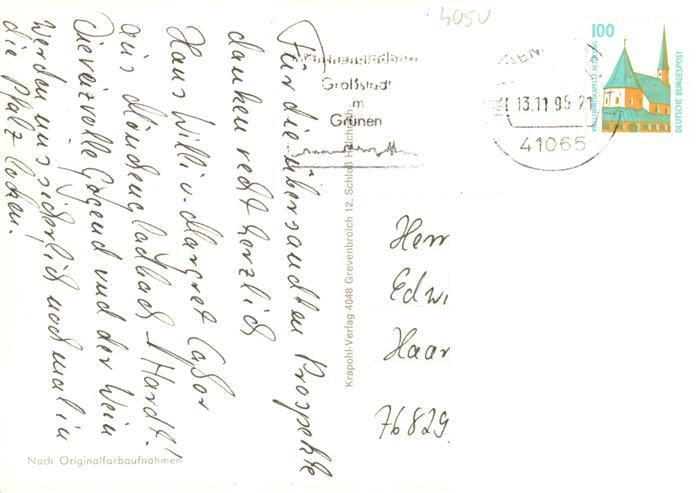 Für die übersandten Prospekte
danken recht herzlich
Hans Willi u. Margret Caßor
aus Mönchengladbach 1 Hardt!
Die reizvolle Gegend und der Wein
werden uns sicherlich noch mal in
die Pfalz locken!
Nach Originalfarbaufnahmen
Krapohl-Verlag 4048 Grevenbroich 12, Schloß
Großstadt
im
Grünen
4050
13.11.95-21
41065
100
DEUTSCHE BUNDESPOST
Herr
Edwi
Haar
76829